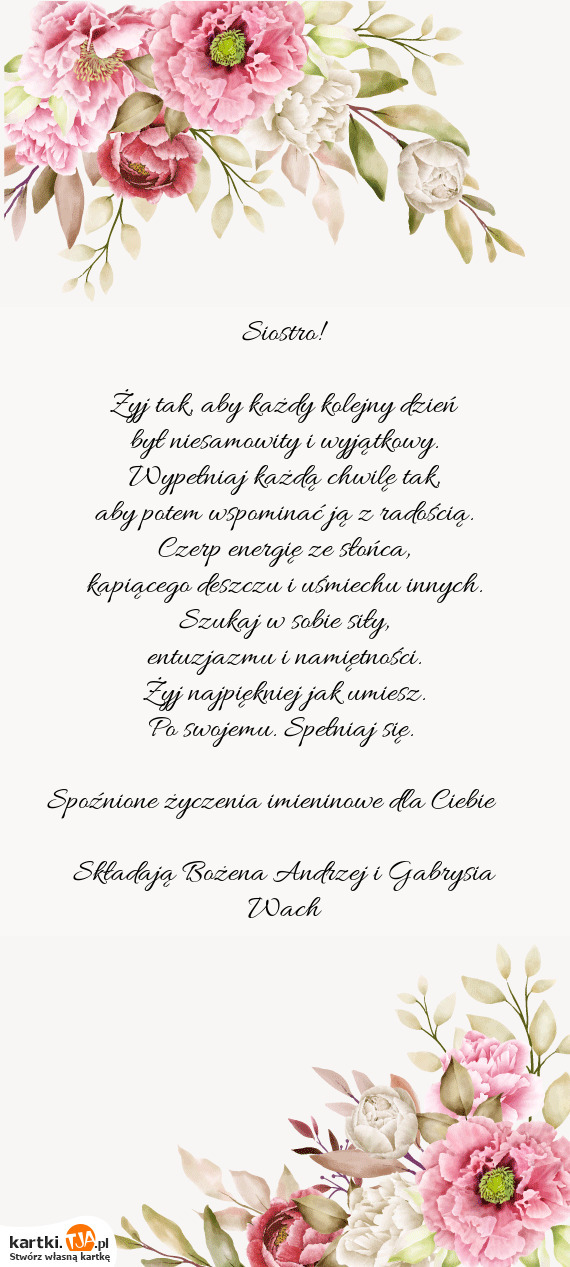 Siostro!
Żyj tak, aby każdy kolejny dzień
był niesamowity i wyjątkowy.
Wypełniaj każdą chwilę tak,
aby potem wspominać ją z radością.
Czerp energię ze słońca,
kapiącego deszczu i uśmiechu innych.
Szukaj w sobie siły,
entuzjazmu i namiętności.
Żyj najpiękniej jak umiesz.
Po swojemu. Spełniaj się.
Spoźnione życzenia imieninowe dla Ciebie
Składają Bożena Andrzej i Gabrysia
Wach
kartki.TJA.pl
Stwórz własną kartkę